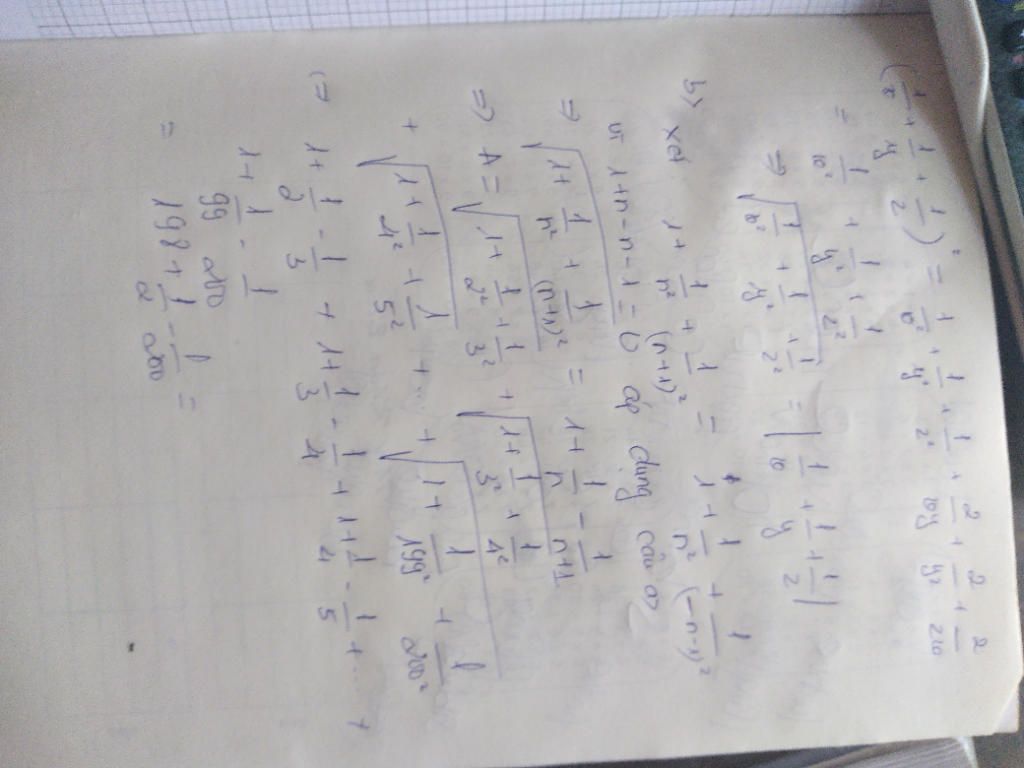 (1/x + 1/y + 1/z)² = 1/x² + 1/y² + 1/z² + 2/xy + 2/yz + 2/zx
= 1/x² + 1/y² + 1/z²
=> √(1/x² + 1/y² + 1/z²) = |1/x + 1/y + 1/z|
b) xét 1 + 1/n² + 1/(n+1)² = 1 + 1/n² + 1/(-n-1)²
vì 1+n-n-1=0 áp dụng câu a
=> √(1 + 1/n² + 1/(n+1)²) = 1 + 1/n - 1/(n+1)
=> A = √(1 + 1/2² + 1/3²) + √(1 + 1/3² + 1/4²)
+ √(1 + 1/4² + 1/5²) + ... + √(1 + 1/199² + 1/200²)
(=> 1 + 1/2 - 1/3 + 1 + 1/3 - 1/4 + 1 + 1/4 - 1/5 + ... +
1 + 1/99 - 1/200
= 198 + 1/2 - 1/200 =